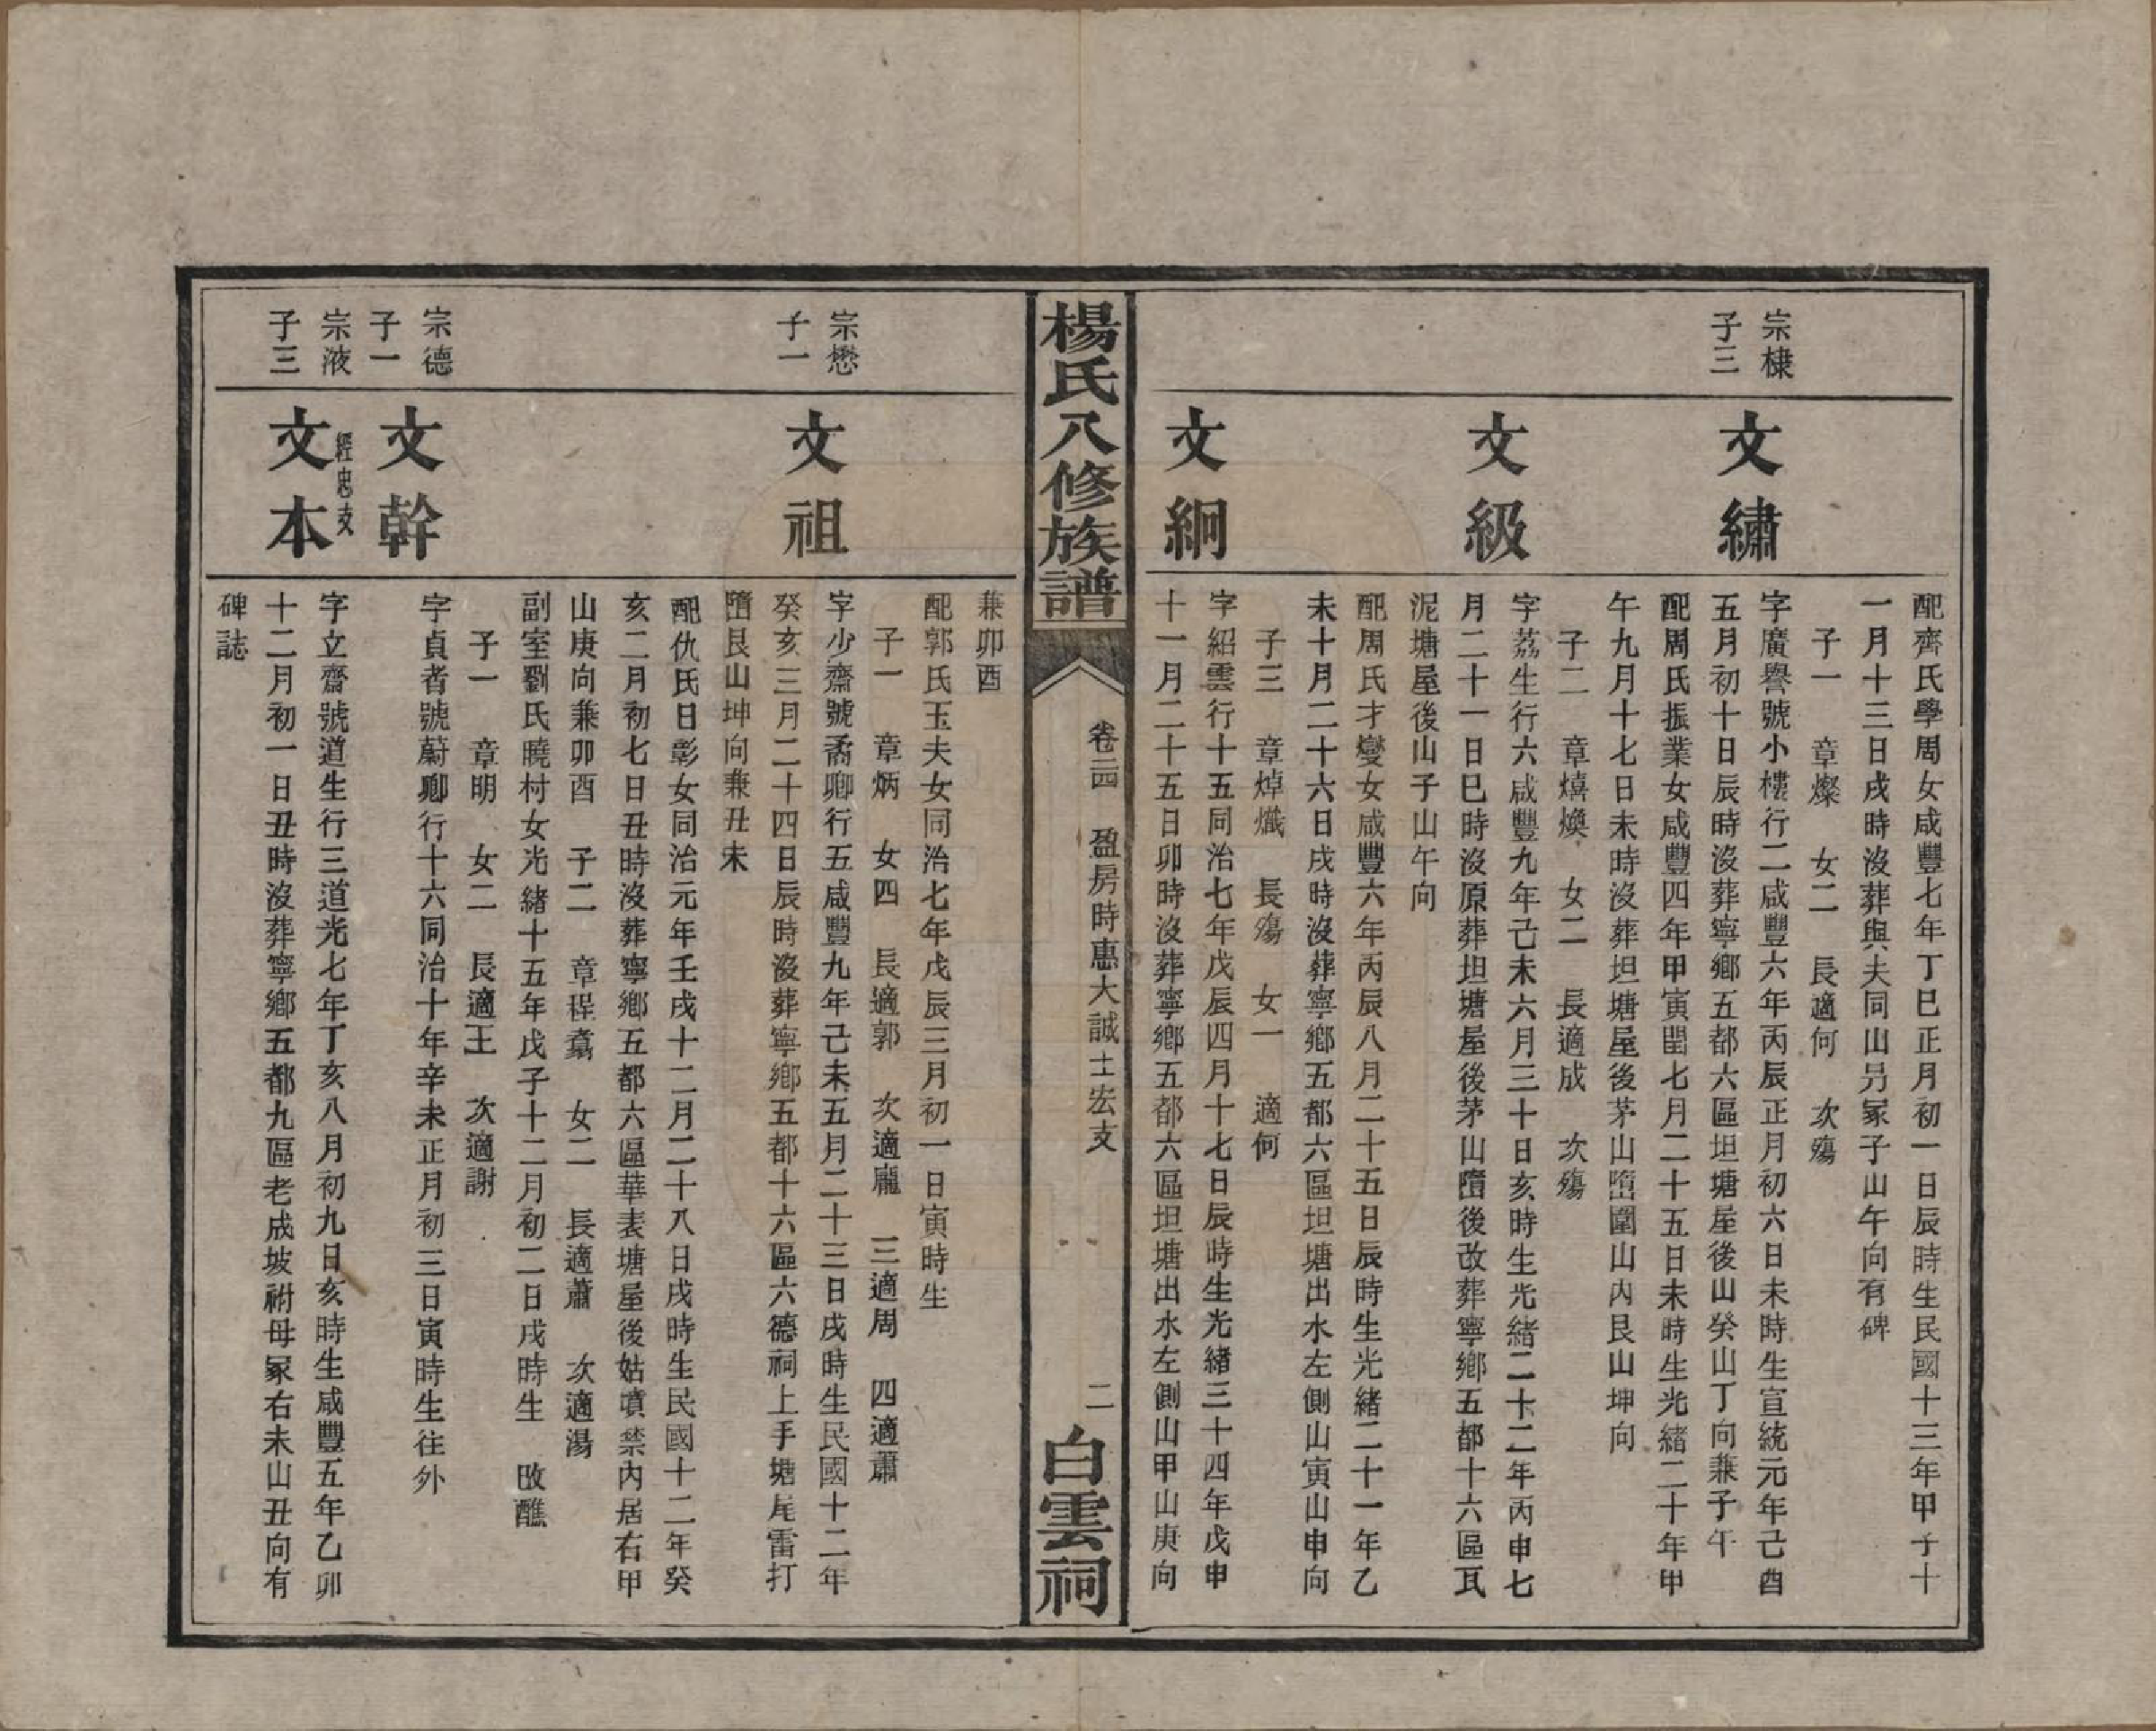 配齊氏學周女咸豐七年丁巳正月初一日辰時生民國十三年甲子十
一月十三日戌時沒葬與夫同山另冢子山午向有碑
子一 章燦 女二 長適何 次殤
宗棣
子三
文繡
字廣譽號小樓行二咸豐六年丙辰正月初六日未時生宣統元年己酉
五月初十日辰時沒葬寧鄉五都六區坦塘屋後山癸山丁向兼子午
配周氏振業女咸豐四年甲寅閏七月二十五日未時生光緒二十年甲
午九月十七日未時沒葬坦塘屋後茅山墮圍山內艮山坤向
子二 章熺煥 女二 長適成 次殤
文級
字荔生行六咸豐九年己未六月三十日亥時生光緒二十二年丙申七
月二十一日巳時沒原葬坦塘屋後茅山墮後改葬寧鄉五都十六區瓦
泥塘屋後山子山午向
配周氏才變女咸豐六年丙辰八月二十五日辰時生光緒二十一年乙
未十月二十六日戌時沒葬寧鄉五都六區坦塘出水左側山寅山申向
子三 章焯熾 長殤 女一 適何
文絅
字紹雲行十五同治七年戊辰四月十七日辰時生光緒三十四年戊申
十一月二十五日卯時沒葬寧鄉五都六區坦塘出水左側山甲山庚向
楊氏八修族譜
卷二四 盈房時惠大誠士宏支
二
白雲祠
兼卯酉
配郭氏玉夫女同治七年戊辰三月初一日寅時生
子一 章炳 女四 長適郭 次適龐 三適周 四適蕭
宗懋
子一
文祖
字少齋號矞卿行五咸豐九年己未五月二十三日戌時生民國十二年
癸亥三月二十四日辰時沒葬寧鄉五都十六區六德祠上手塘尾雷打
墮艮山坤向兼丑未
配仇氏日彰女同治元年壬戌十二月二十八日戌時生民國十二年癸
亥二月初七日丑時沒葬寧鄉五都六區華表塘屋後姑墳禁內居右甲
山庚向兼卯酉 子二 章程翥 女二 長適蕭 次適湯
副室劉氏曉村女光緒十五年戊子十二月初二日戌時生 改醮
子一 章明 女二 長適王 次適謝
宗德
子一
文幹
字貞耆號蔚卿行十六同治十年辛未正月初三日寅時生往外
經忠支
宗液
子三
文本
字立齋號道生行三道光七年丁亥八月初九日亥時生咸豐五年乙卯
十二月初一日丑時沒葬寧鄉五都九區老成坡祔母冢右未山丑向有
碑誌